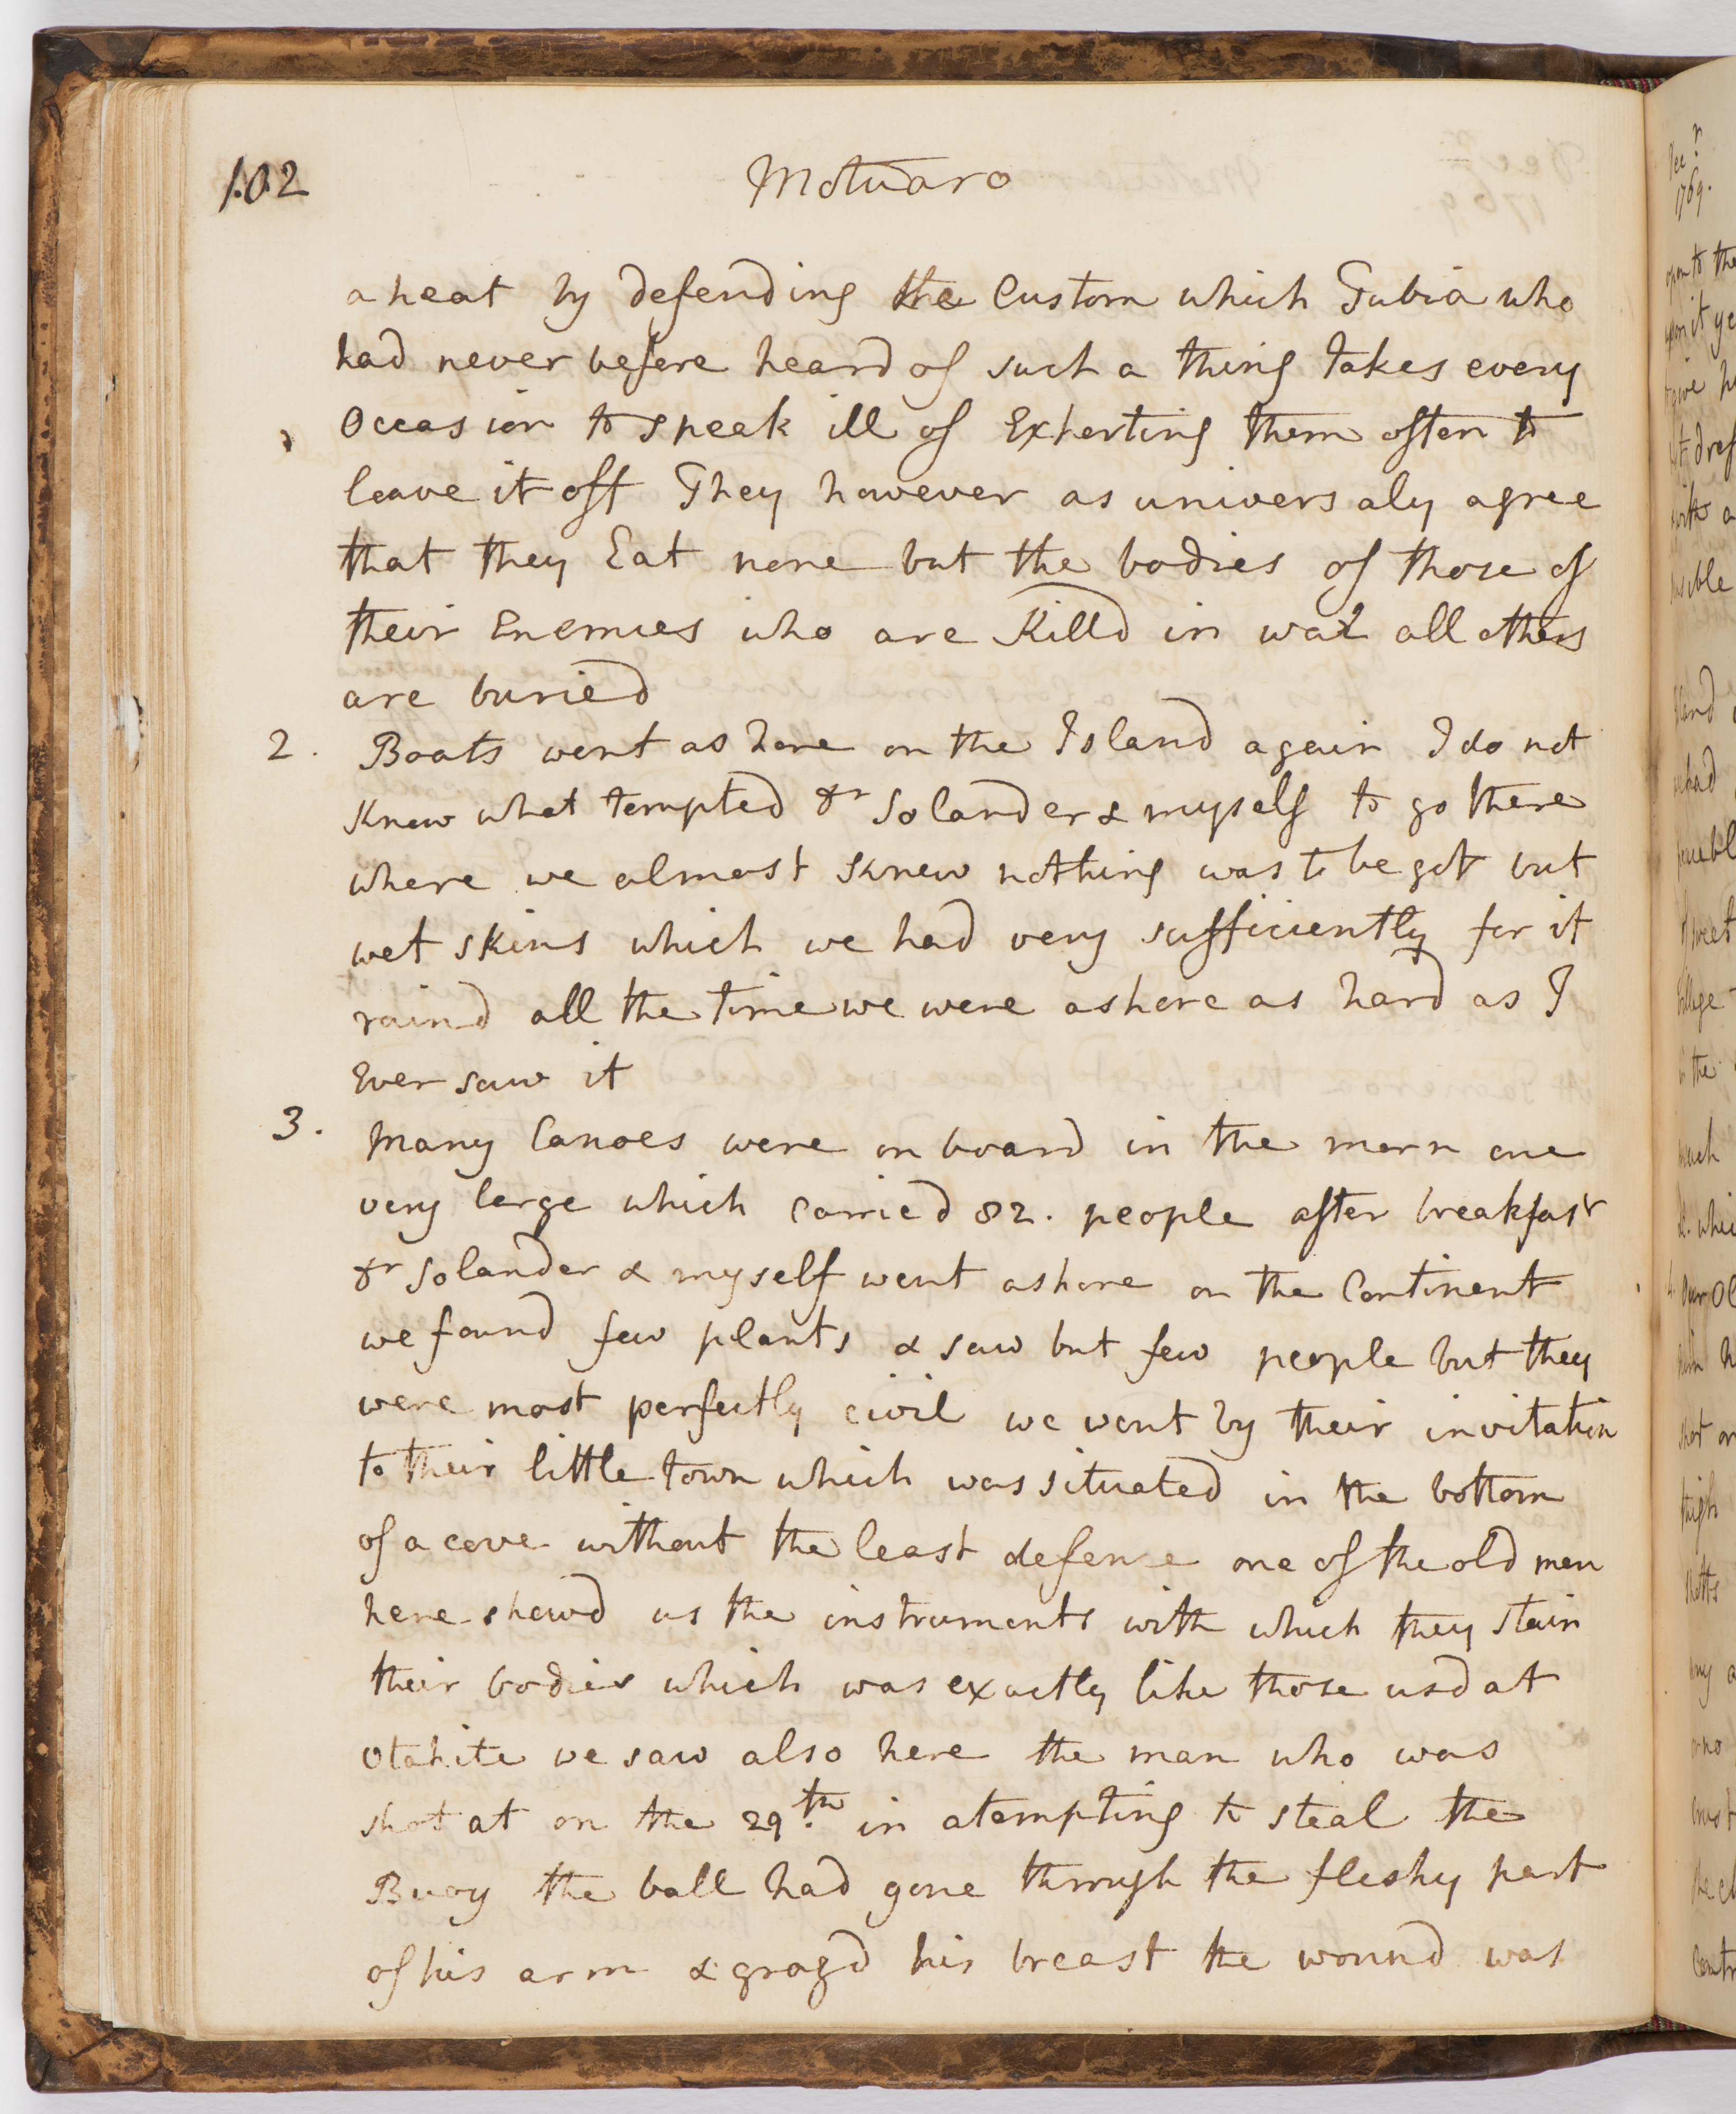 102
Motuaro
a heat by defending the Custom which Tubia who
had never before heard of such a thing takes every
Occasion to speek ill of Exhorting them often to
leave it off They however as universaly agree
that they Eat none but the bodies of those of
their Enemies who are Killd in war all others
are buried
2. Boats went ashore on the Island again I do not
Know what tempted Dr Solander & myself to go there
where we almost Knew nothing was to be got but
wet skins which we had very sufficiently for it
raind all the time we were ashore as hard as I
Ever saw it
3. Many Canoes were on board in the morn one
very large which Carried 82. people after breakfast
Dr Solander & myself went ashore on the Continent
we found few plants & saw but few people but they
were most perfectly civil we went by their invitation
to their little town which was situated in the bottom
of a cove without the least defense one of the old men
here shewd us the instruments with which they stain
their bodies which was exactly like those usd at
Otahite we saw also here the man who was
shot at on the 29th. in atempting to steal the
Buoy the ball had gone through the fleshy part
of his arm & grazd his breast the wound was
1769.